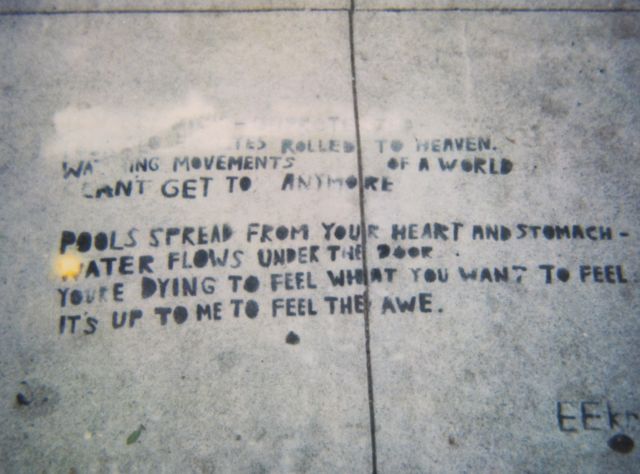 ROLLED TO HEAVEN.
MOVEMENTS OF A WORLD
CANT GET TO ANYMORE
POOLS SPREAD FROM YOUR HEART AND STOMACH -
WATER FLOWS UNDER THE DOOR.
YOU'RE DYING TO FEEL WHAT YOU WANT TO FEEL.
IT'S UP TO ME TO FEEL THE AWE.